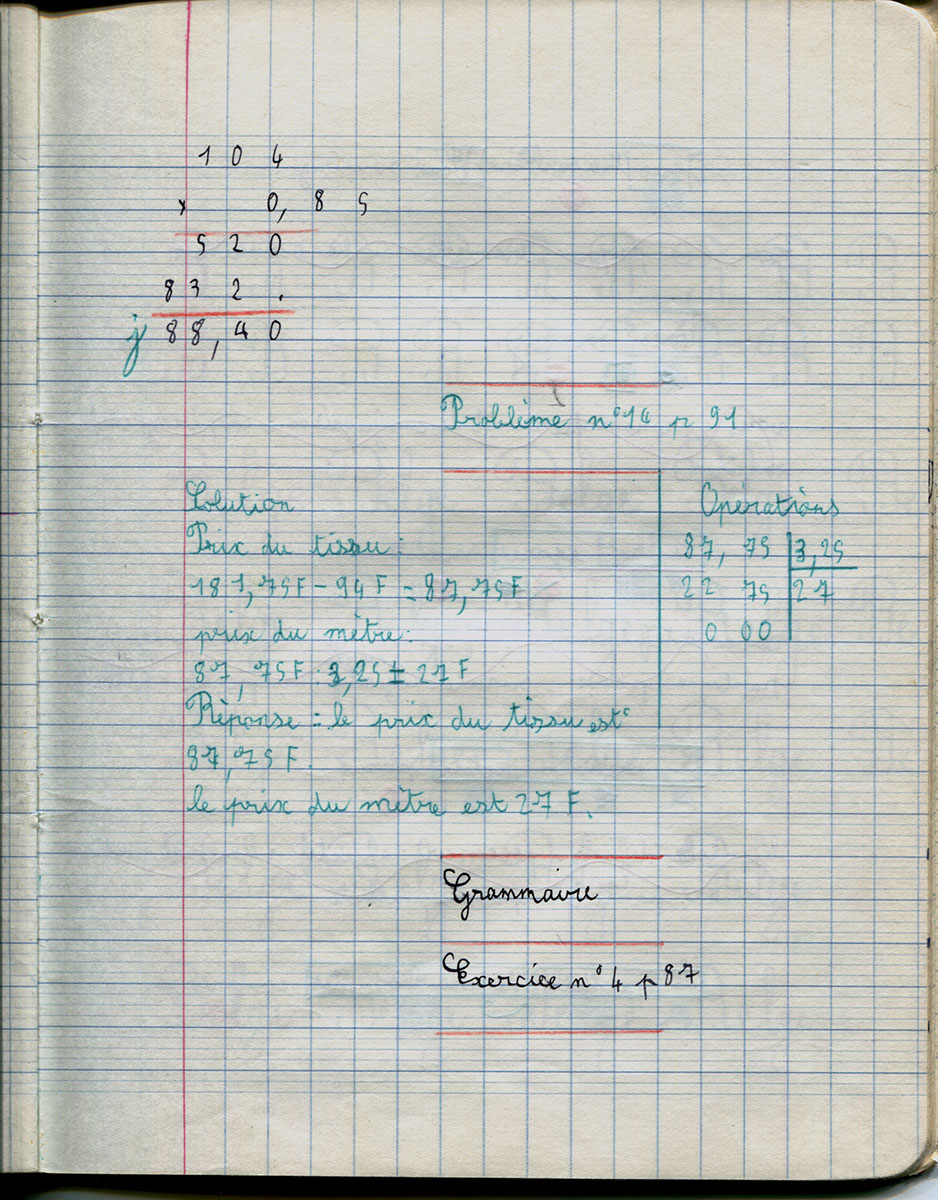 1 0 4
x 0, 8 5
5 2 0
8 3 2 .
j 8 8, 4 0
Problème n° 14 p 91
Solution
Prix du tissu :
181,75F - 94F = 87,75F
prix du mètre :
87, 75F : 3,25 = 27F
Réponse = le prix du tissu est
87,75F.
le prix du mètre est 27 F.
Opérations
87, 75 | 3,25
22 75 | 27
0 00
Grammaire
Exercice n° 4 p 87